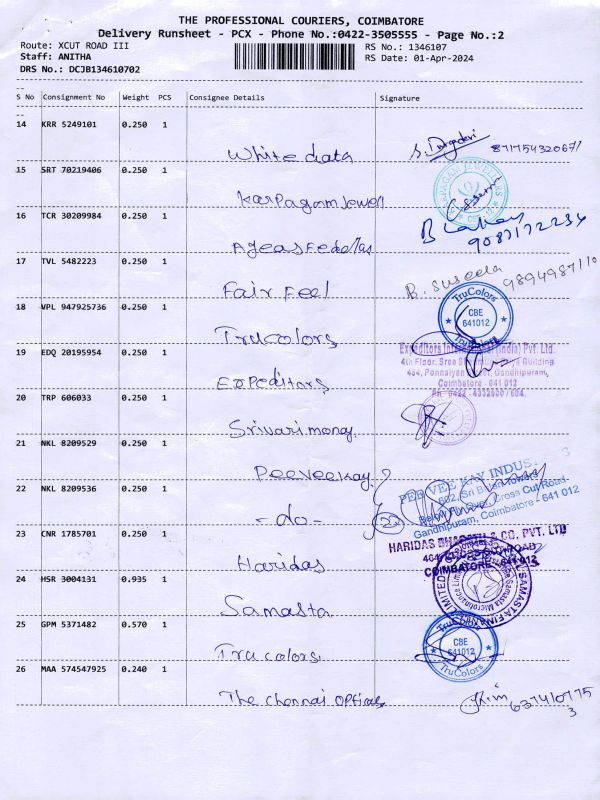 THE PROFESSIONAL COURIERS, COIMBATORE
Delivery Runsheet - PCX - Phone No.:0422-3505555 - Page No.:2
Route: XCUT ROAD III
RS No.: 1346107
Staff: ANITHA
RS Date: 01-Apr-2024
DRS No.: DCJB134610702
--
S No Consignment No Weight PCS Consignee Details Signature
--
14 KRR 5249101 0.250 1
White data 8717543206
15 SRT 70219406 0.250 1
Karpagam Jewell
16 TCR 30209984 0.250 1
Ageas Federlas 9087172236
17 TVL 5482223 0.250 1
Fair Feel B. Suseela 9894987110
18 VPL 947925736 0.250 1
TruColors
CBE
641012
TruColors
Trucolors
19 EDQ 20195954 0.250 1
Expeditors International (India) Pvt. Ltd.
4th Floor, Sree Building
Gandhipuram,
Coimbatore - 641 012
Expeditors
20 TRP 606033 0.250 1
Srivari money
21 NKL 8209529 0.250 1
Peeveekay
PEE VEE KAY INDUS.
Cross Cut Road
Gandhipuram, Coimbatore - 641 012
22 NKL 8209536 0.250 1
- do - 2
23 CNR 1785701 0.250 1
HARIDAS & CO. PVT. LTD
COIMBATORE - 641 012
Haridas
24 HSR 3004131 0.935 1
Samasta Microfinance Limited
Samasta
25 GPM 5371482 0.570 1
TruColors
CBE
641012
TruColors
Trucolors
26 MAA 574547925 0.240 1
The Chennai Opticals